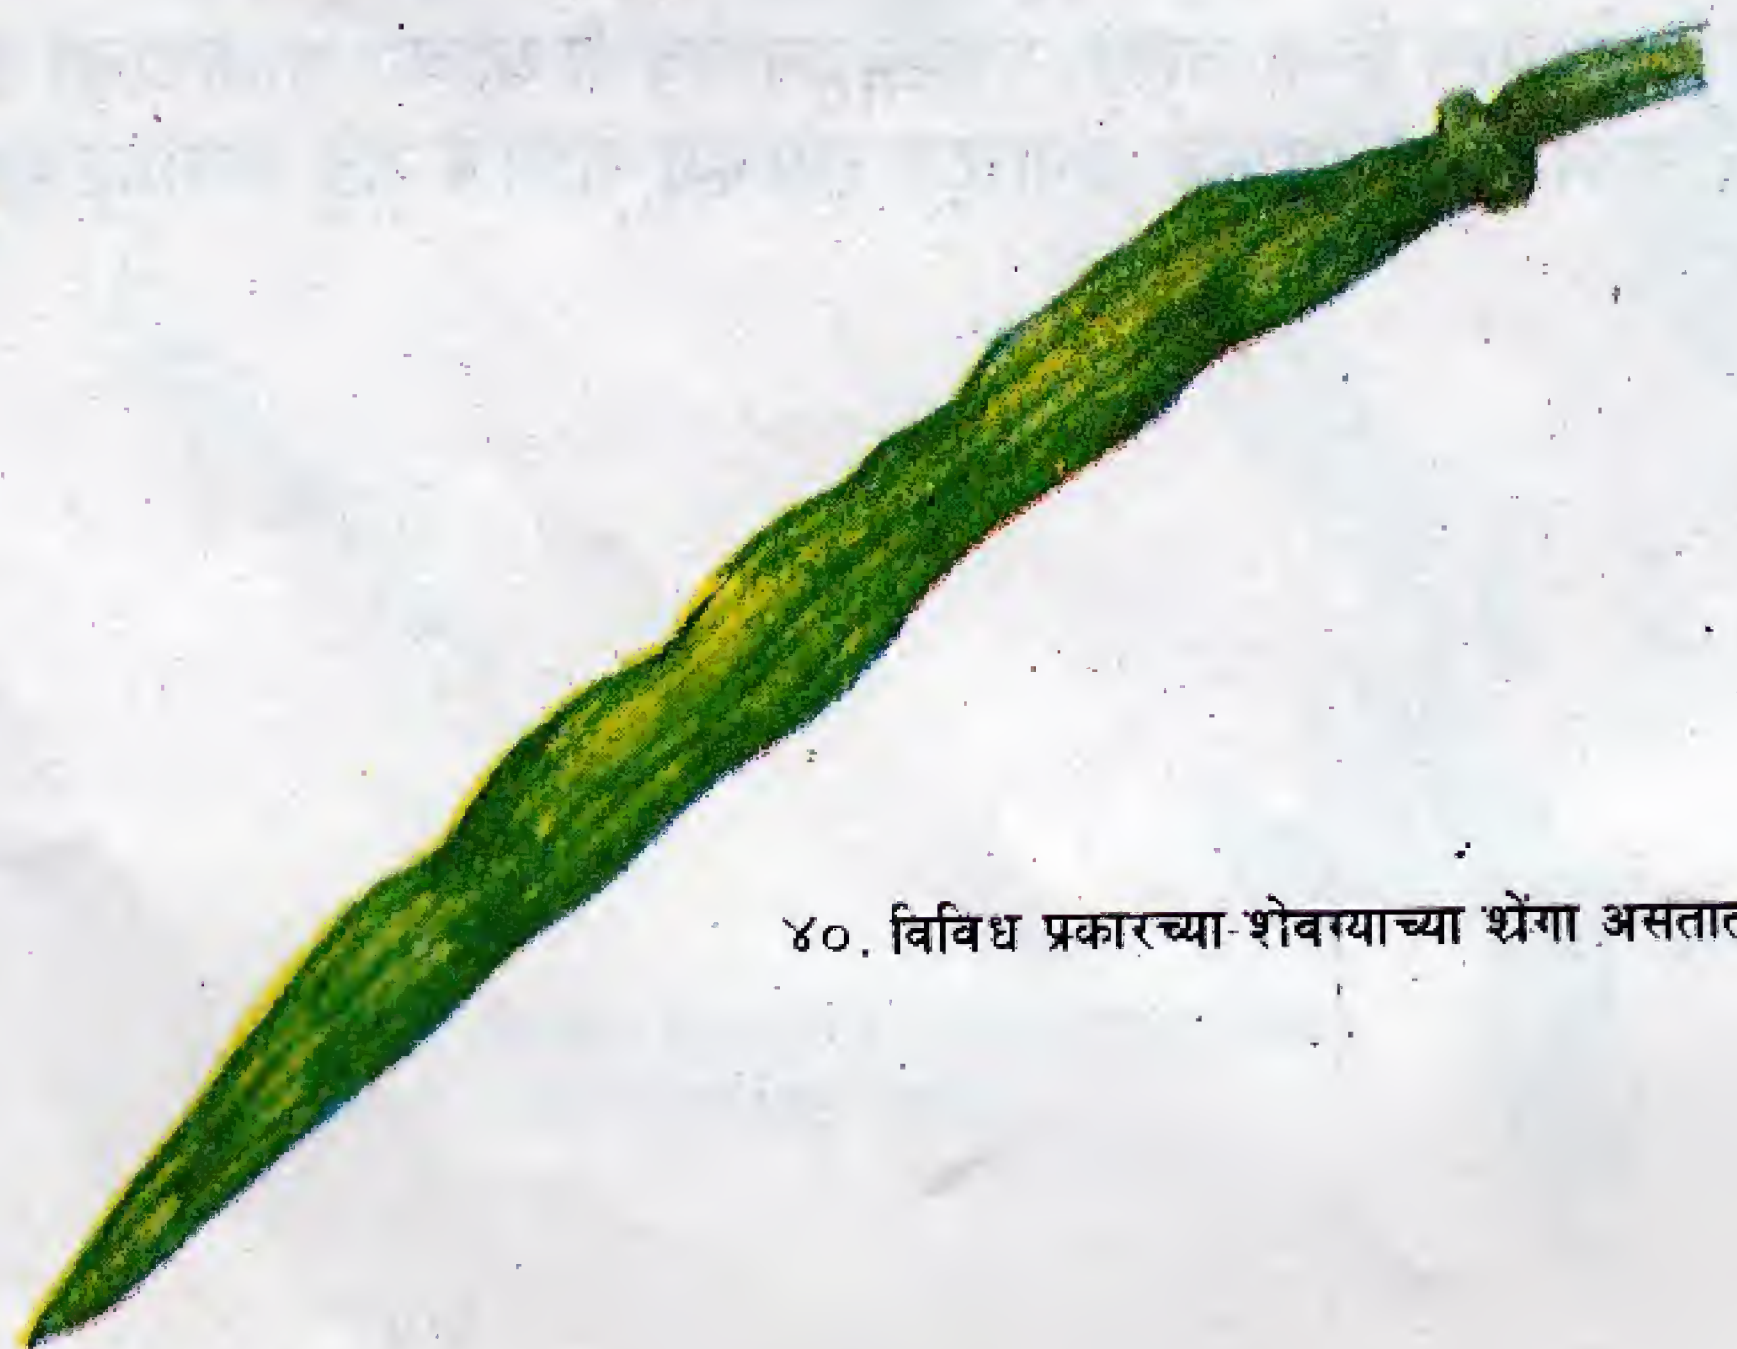 ४०. विविध प्रकारच्या शेवग्याच्या शेंगा असतात